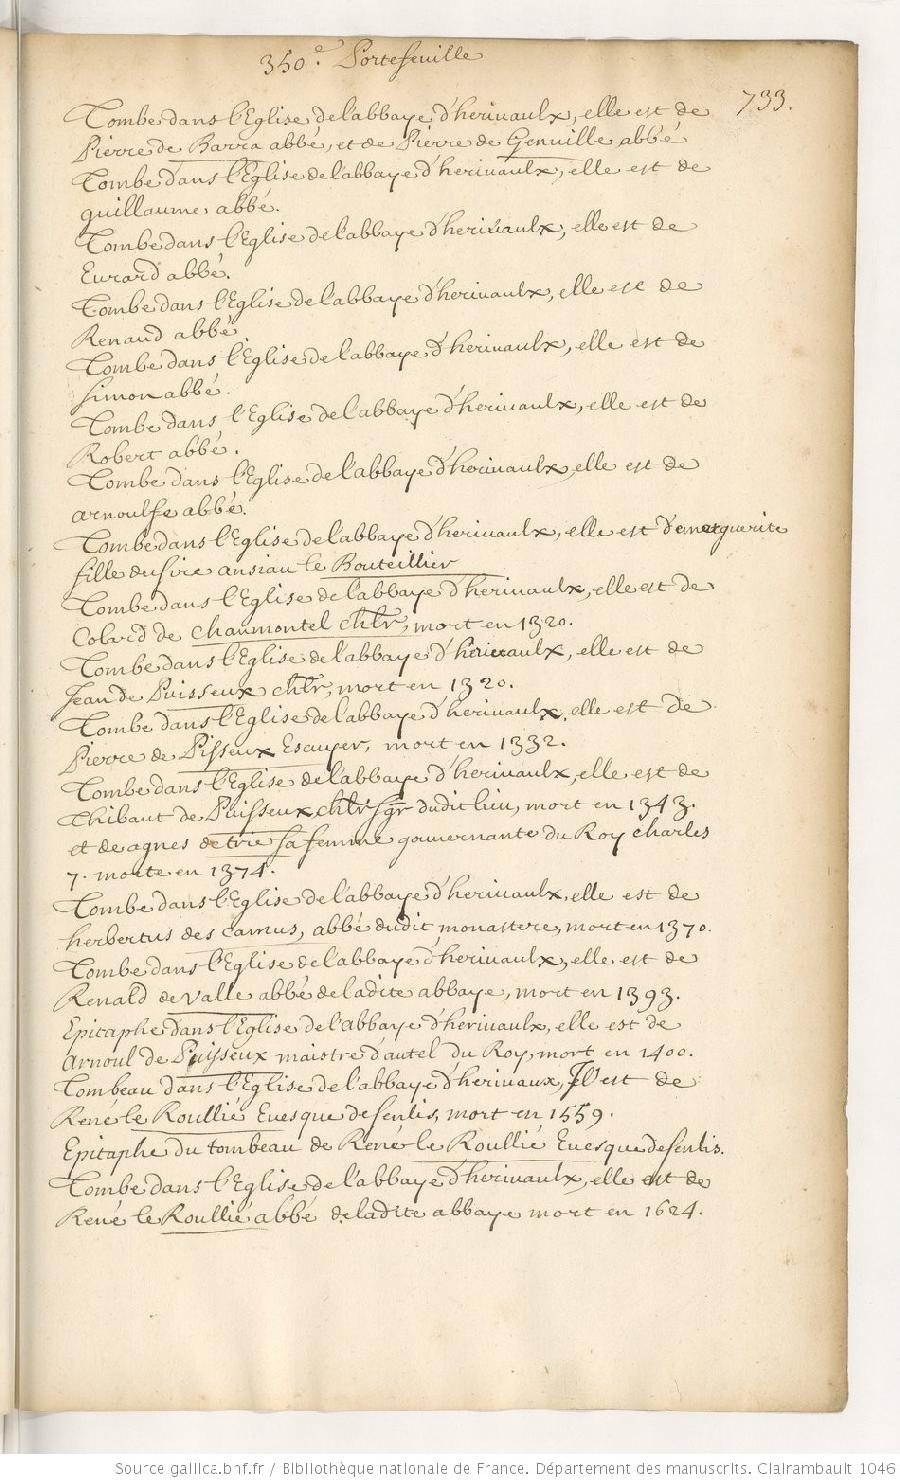 350.e Portefeuille
733.
Tombe dans l'Eglise de l'abbaye d'heriuaulx, elle est de
Pierre de Barra abbé, et de Pierre de Genuille abbé
Tombe dans l'Eglise de l'abbaye d'heriuaulx, elle est de
guillaume abbé.
Tombe dans l'Eglise de l'abbaye d'heriuaulx, elle est de
Eurard abbé.
Tombe dans l'Eglise de l'abbaye d'heriuaulx, elle est de
Renaud abbé
Tombe dans l'Eglise de l'abbaye d'heriuaulx, elle est de
simon abbé.
Tombe dans l'Eglise de l'abbaye d'heriuaulx, elle est de
Robert abbé.
Tombe dans l'Eglise de l'abbaye d'heriuaulx, elle est de
arnoulfe abbé.
Tombe dans l'Eglise de l'abbaye d'heriuaulx, elle est de marguerite
fille du sire ansiau le Bouteillier
Tombe dans l'Eglise de l'abbaye d'heriuaulx, elle est de
Colard de chaumontel chlr, mort en 1320.
Tombe dans l'Eglise de l'abbaye d'heriuaulx, elle est de
Jean de Puisseux chlr, mort en 1320.
Tombe dans l'Eglise de l'abbaye d'heriuaulx, elle est de
Pierre de Pisseux Escuyer, mort en 1332.
Tombe dans l'Eglise de l'abbaye d'heriuaulx, elle est de
Thibaut de Puisseux chlr sgr dudit lieu, mort en 1343.
et de agnes de trie sa femme gouuernante du Roy charles
7. morte en 1374.
Tombe dans l'Eglise de l'abbaye d'heriuaulx, elle est de
herbertus des camus, abbé dudit monastere, mort en 1370.
Tombe dans l'Eglise de l'abbaye d'heriuaulx, elle est de
Renald de valle abbé de ladite abbaye, mort en 1393.
Epitaphe dans l'Eglise de l'abbaye d'heriuaulx, elle est de
arnoul de Puisseux maistre d'autel du Roy, mort en 1400.
Tombeau dans l'Eglise de l'abbaye d'heriuaux, Il est de
René le Roullié Euesque de senlis, mort en 1559.
Epitaphe du tombeau de René le Roullié Euesque de senlis.
Tombe dans l'Eglise de l'abbaye d'heriuaulx, elle est de
René le Roullié abbé de ladite abbaye mort en 1624.
Source gallica.bnf.fr / Bibliothèque nationale de France. Département des manuscrits. Clairambault 1046